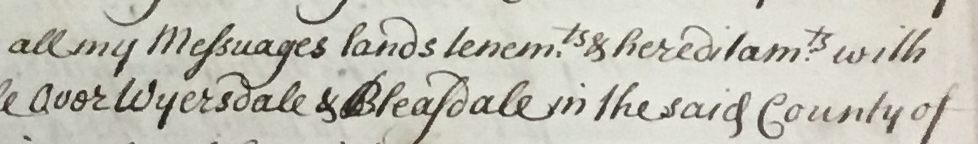 all my Meſsuages lands tenem.ts & hereditam.ts with
le Over Wyersdale & Bleaſdale in the said County of